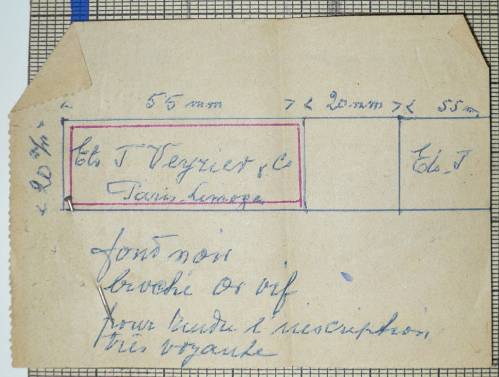 < 55 mm > < 20 mm > < 55 m
< 20 m/m >
Ets J Veyrier & Co
Paris-Limoges
Ets J
fond noir
broché or vif
pour rendre l'inscription
très voyante